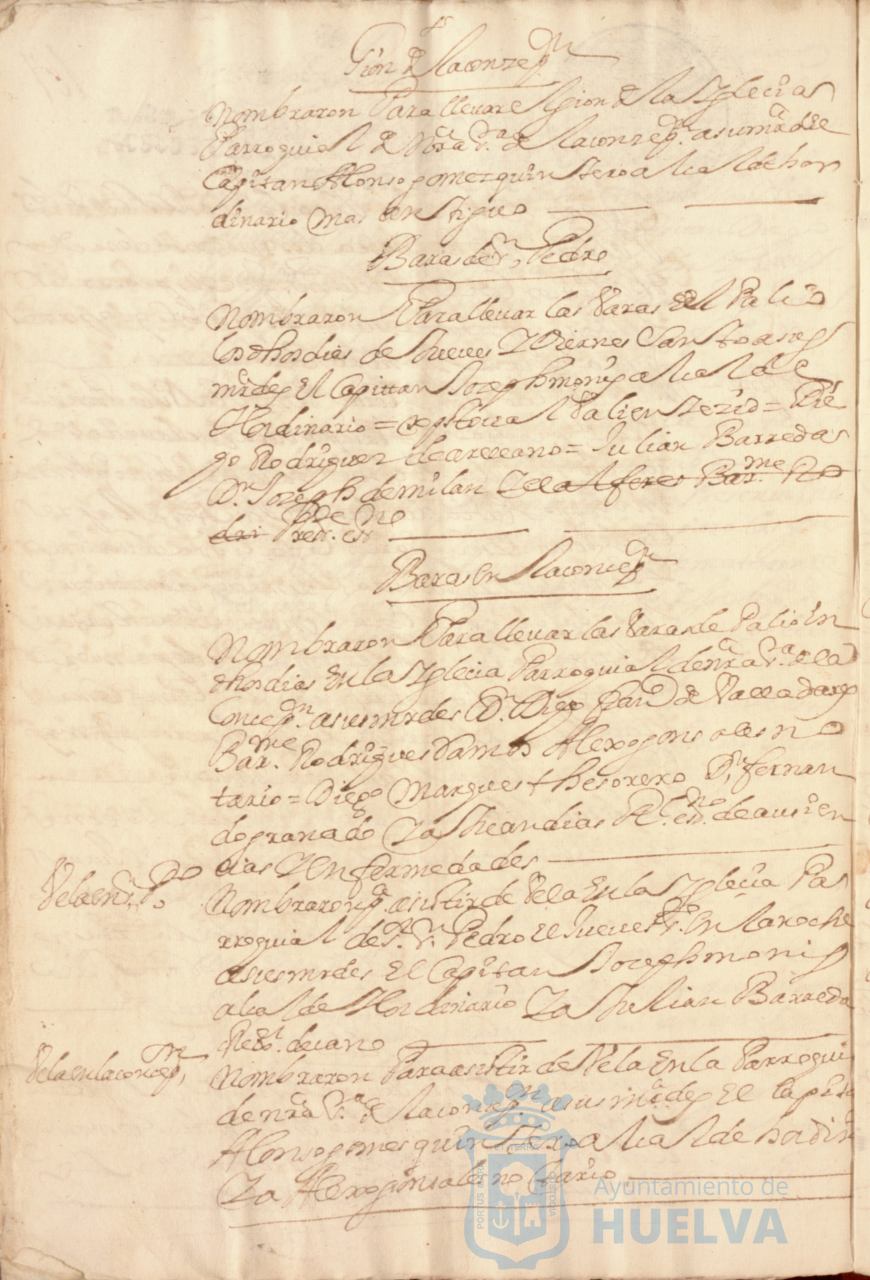 Gion de la conzepn
Nombraron Para llevar el gion de la Yglecia
Parroquial de Nra Sa de la conzepn a su md el
Capitan Alonso gomez quintero alcalde hor
dinario mas antiguo
Baras de Sn Pedro
Nombraron Para llevar las Varas del Palio
los dhos dias de Jueves Y Viernes Santo a sus
mrdes El Capittan Joseph moniz alcalde
Hordinario = Diê
go Rodriguez de arellano = Julian Barreda
Dn Joseph de milan Y el alferes Barme Ro
dri
Baras en la concepn
Nombraron Para llevar las Varas de Palio En
dhos dias En la Yglecia Parroquial de nra Sa de la
Concepn a sus mrdes Dn Diego de Valladares
Barme Rodrigues Damos Alexo gonsales no
tario = Diego Marques thesorero Dn fernan
do granado Y a Juan dias Rl esno de ausien
cias Y Enfermedades
Vela en Sn Po
Nombraron pa asistir de Vela En la Yglecia Pa
rroquial de Sr Sn Pedro El Jueves Sto En la noche
a sus mrdes El Capitan Joseph moniz
alcalde Hordinario Y a Julian Barreda
Rexor decano
Vela en la concepn
Nombraron Para asistir de Vela En la Parroqui
de nra Sa de la Conzepn a sus mrdes El Capita
Alonso gomes quintero alcalde hordin
Y a Alexo gonsales no tario
PORTUS MARIS
ET TERRE
CUSTODIA
Ayuntamiento de
HUELVA